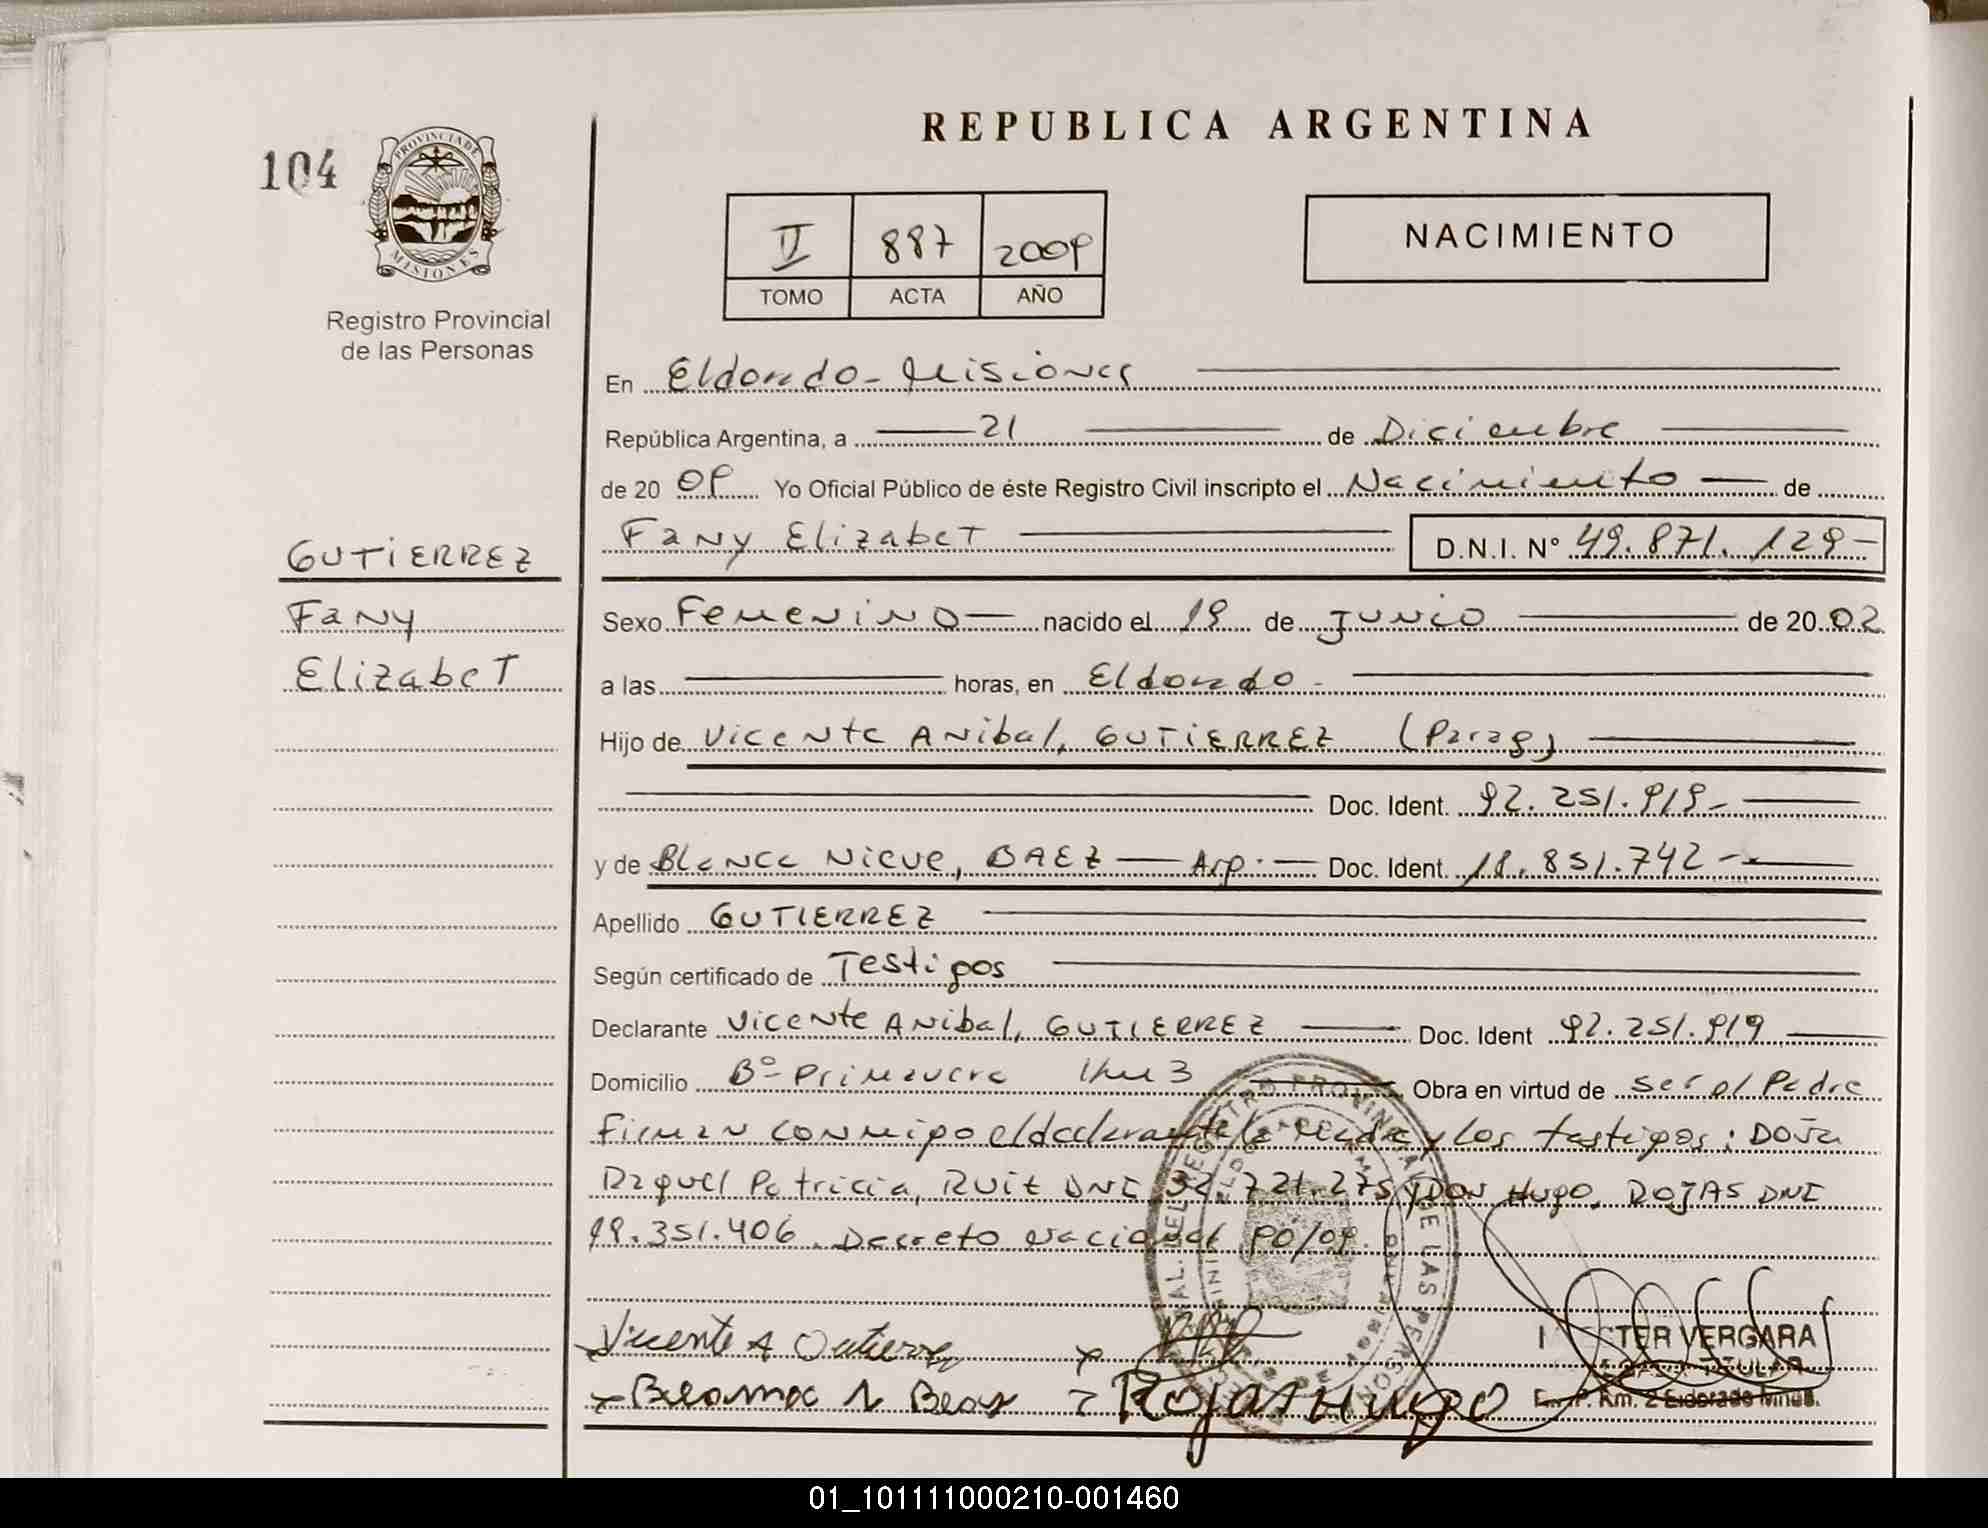 REPUBLICA ARGENTINA
104
PROVINCIA DE
MISIONES
Registro Provincial
de las Personas
II 887 2009
TOMO ACTA AÑO
NACIMIENTO
En Eldorado - Misiones
República Argentina, a 21 de Diciembre
de 20 09 Yo Oficial Público de éste Registro Civil inscripto el Nacimiento de
Fany Elizabet D.N.I. N° 49.871.129-
GUTIERREZ
Fany
Elizabet
Sexo Femenino nacido el 19 de Junio de 20 02
a las horas, en Eldorado -
Hijo de Vicente Anibal, GUTIERREZ (Parag)
Doc. Ident. 92.251.919-
y de Blanca Nieve, BAEZ Arg. Doc. Ident. 18.851.742-
Apellido GUTIERREZ
Según certificado de Testigos
Declarante Vicente Anibal, GUTIERREZ Doc. Ident 92.251.919
Domicilio B° Primavera Km 3 Obra en virtud de ser el Padre
Firman conmigo el declarante la madre y los testigos: Doña
Raquel Patricia, RUIZ DNI 32.721.275 y Don Hugo, ROJAS DNI
19.351.406. Decreto nacional 90/09.
Vicente A Gutierrez
Rojas Hugo
TER VERGARA
TITULAR
Km. 2 Eldorado Mnes.
01_101111000210-001460